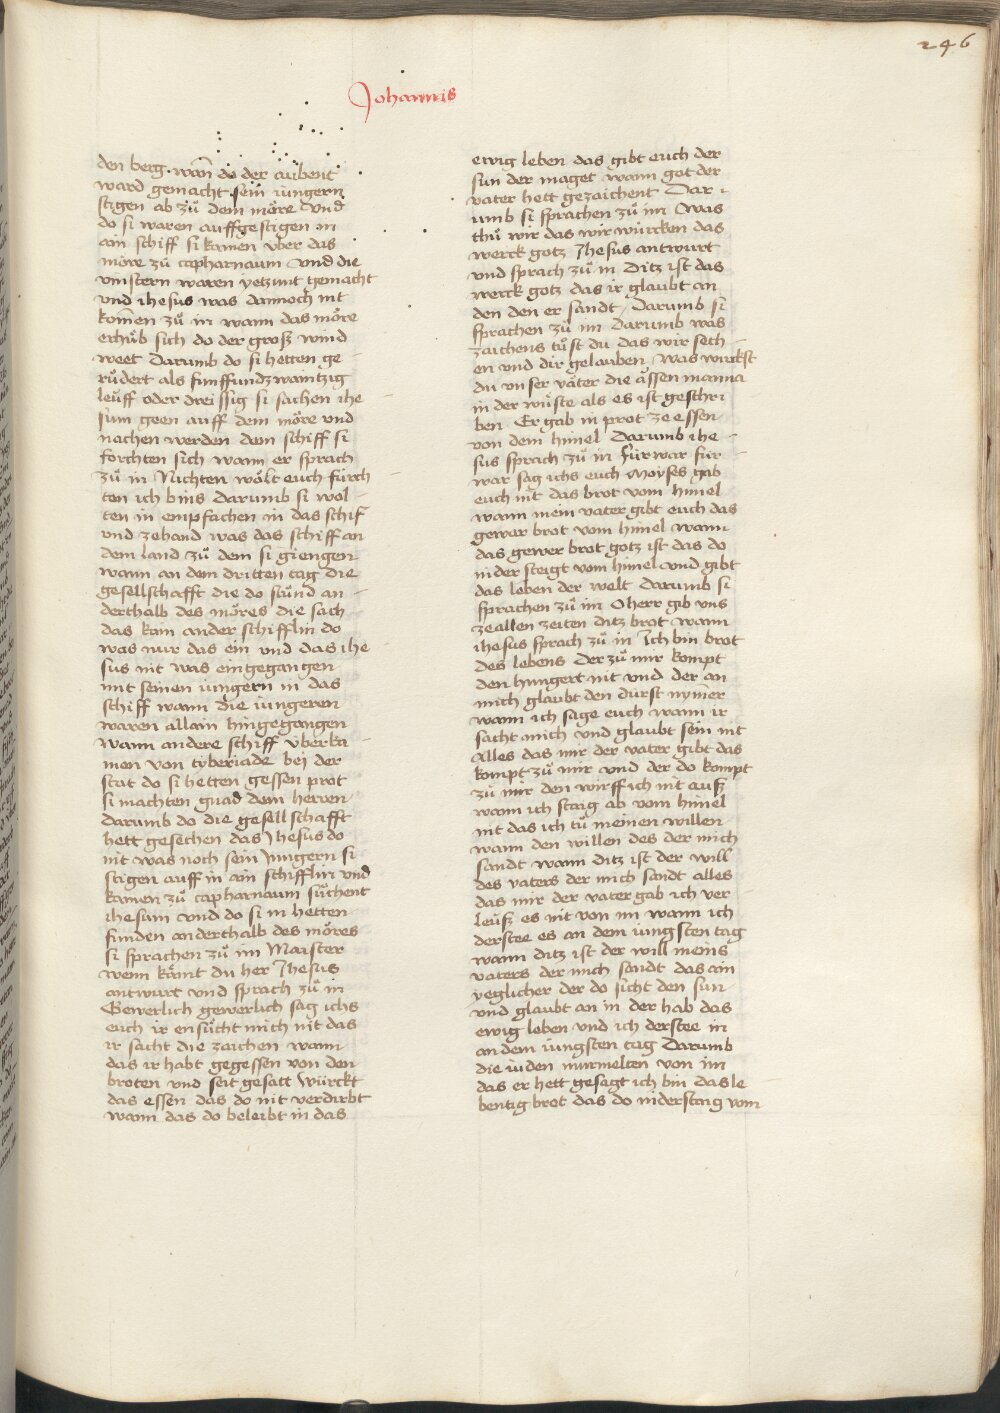 246
Johannis
den berg · wan̄ do der aubent
ward gemacht sein iungern
stigen ab zů dem möre Vnd
do si waren auffgestigen in
ain schiff si kamen vber das
möre zů capharnaum Vnd die
vinstern waren yetzunt gemacht
vnd ihesus was dannoch nit
kom̄en zů in wann das möre
erhůb sich do der groß wind
weet Darumb do si hetten ge-
růdert als finffundzwaintzig
leüff oder dreissig si sachen ihe-
sum geen auff dem möre vnd
nachen werden dem schiff si
forchten sich wann er sprach
zů in Nichten wölt euch fürch-
ten ich bins Darumb si wol-
ten in empfachen in das schif
vnd zehand was das schiff an
dem land zů dem si giengen
wann an dem dritten tag die
gesellschafft die do stůnd an-
derthalb des möres die sach
das kain ander schifflin do
was nur das ein vnd das ihe
sus nit was eingegangen
mit seinen iungern in das
schiff wann die iungeren
waren allain hingegangen
wann andere schiff vberka-
men von tyberiade bei der
stat do si hetten gessen prot
si machten gnad dem herren
darumb do die gesellschafft
hett gesechen das Jhesus do
nit was noch sein Jungern si
stigen auff in ain schifflin vnd
kamen zů capharnaum sůchent
ihesum vnd do si in hetten
funden anderthalb des möres
si sprachen zů im Maister
wenn kämt du her Jhesus
antwurt vnd sprach zů in
Gewerlich gewerlich sag ichs
euch ir ensůcht mich nit das
ir sacht die zaichen wann
das ir habt gegessen von den
broten vnd seit gesatt würckt
das essen das do nit verdirbt
wann das do beleibt in das
ewig leben das gibt euch der
sun der maget wann got der
vater hett gezaichent Dar-
umb si sprachen zů im Was
thů wir das wir würcken das
werck gotz Jhesus antwurt
vnd sprach zů in Ditz ist das
werck gotz das ir glaubt an
den den er sandt / Darumb si
sprachen zů im Darumb was
zaichens tůst du das wir sech-
en vnd dir gelauben Was wurckst
du vnser väter die ässen manna
in der wüste als es ist geschri-
ben Er gab in prot ze essen
von dem himel Darumb ihe-
sus sprach zů in Fürwar für-
war sag ichs euch Moyses gab
euch nit das brot vom himel
wann mein vater gibt euch das
gewer brot vom himel wann
das gewer brot gotz ist das do
nider steigt vom himel vnd gibt
das leben der welt Darumb si
sprachen zů im O herr gib vns
ze allen zeiten ditz brot wann
ihesus sprach zů in Jch bin brot
des lebens der zů mir kompt
den hungert nit vnd der an
mich glaubt den dürst nym̄er
wann ich sage euch wann ir
sacht mich vnd glaubt sein nit
Alles das mir der vater gibt das
kompt zů mir vnd der do kompt
zů mir den wirff ich nit auß
wann ich staig ab vom himel
nit das ich tů meinen willen
wann den willen des der mich
sandt wann ditz ist der will
des vaters der mich sandt alles
das mir der vater gab ich ver-
leüß es nit von im wann ich
derstee es an dem iungsten tag
wann ditz ist der will meins
vaters der mich sandt das ain
yeglicher der do sicht den sun
vnd glaubt an in der hab das
ewig leben vnd ich derstee in
an dem iungsten tag Darumb
die iuden murmelten von im
das er hett gesagt ich bin das le
bentig brot das do niderstaig vom